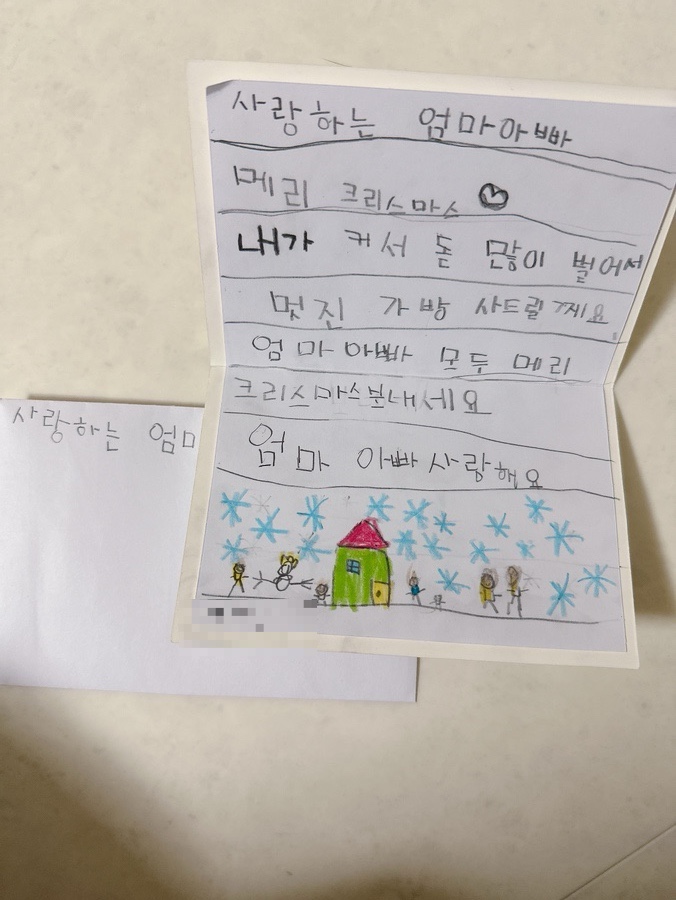 사랑하는 엄마아빠
메리 크리스마스
내가 커서 돈 많이 벌어서
멋진 가방 사드릴께요
엄마아빠 모두 메리
크리스마스보내세요
엄마 아빠사랑해요
사랑하는 엄마